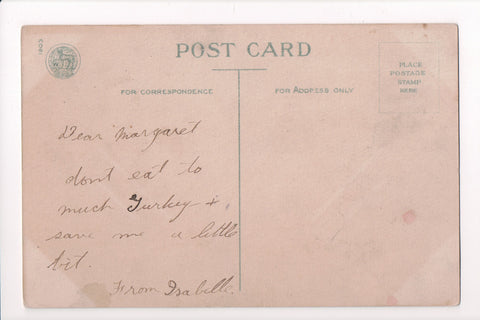 1903
POST CARD
PLACE
POSTAGE
STAMP
HERE
FOR CORRESPONDENCE
FOR ADDRESS ONLY
Dear Margaret
dont eat to
much Turkey +
save me a little
bit.
From Isabille.